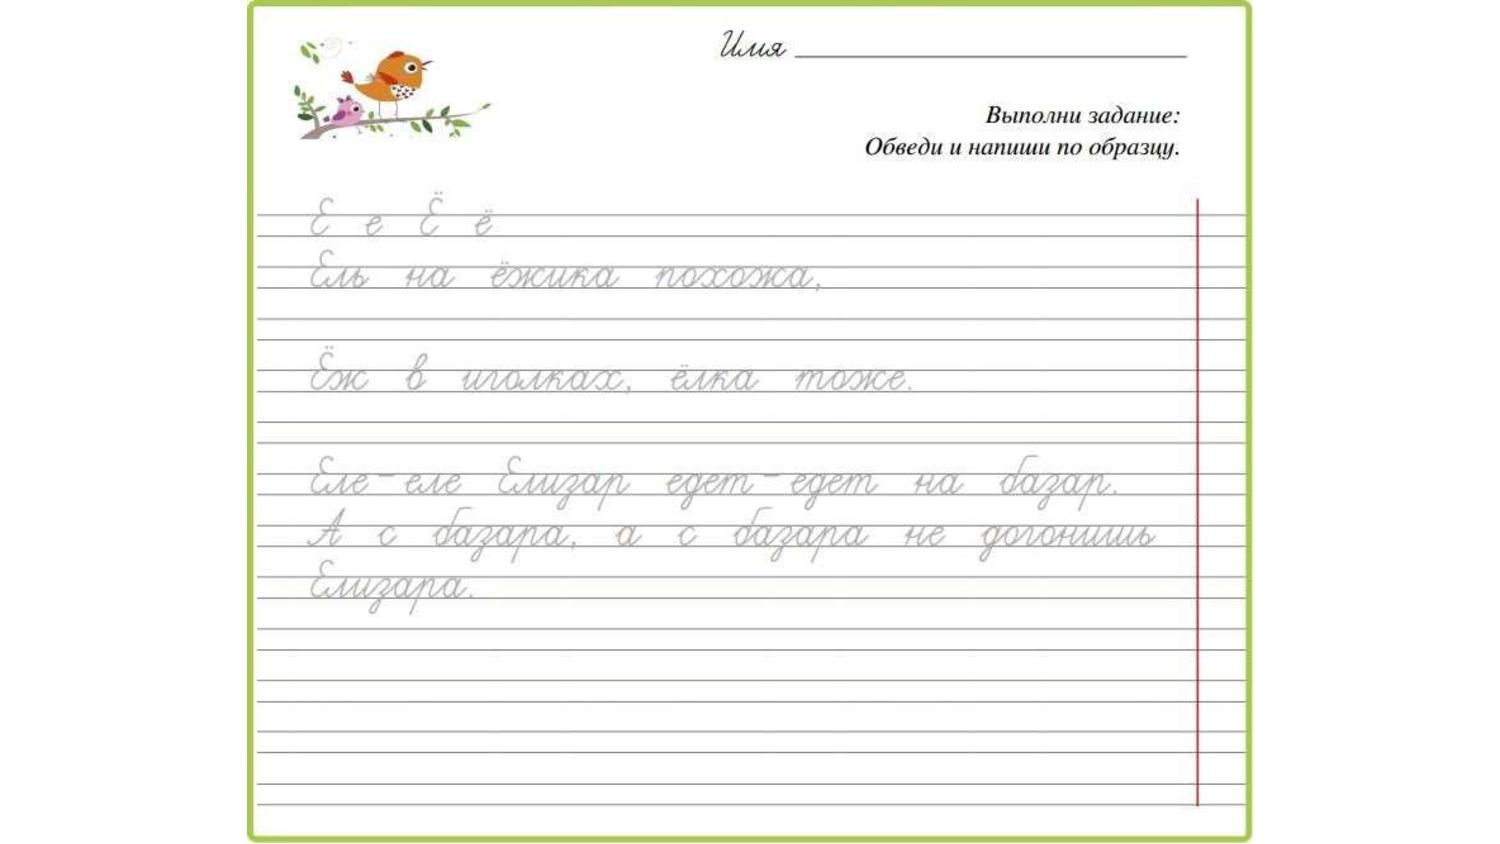 Имя
Выполни задание:
Обведи и напиши по образцу.
Е е Ё ё
Ель на ёжика похожа,
Ёж в иголках, ёлка тоже.
Еле-еле Елизар едет-едет на базар.
А с базара, а с базара не догонишь
Елизара.